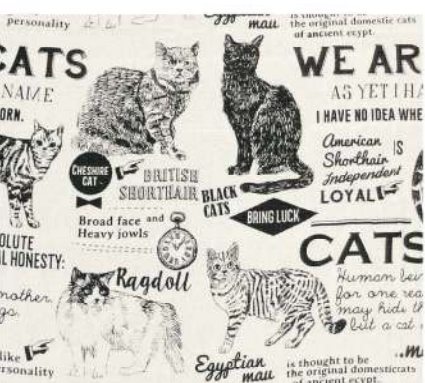 personality
Egyptian
mau
is thought to be
the original domestic cats
of ancient ecypt.
CATS
NAME
ORN.
WE AR
AS YET I HA
I HAVE NO IDEA WHE
American
Shorthair IS
Independent
LOYAL
CHESHIRE
CAT
BRITISH
SHORTHAIR
BLACK
CATS
BRING LUCK
Broad face and
Heavy jowls
OLUTE
L HONESTY:
mother.
gs.
Ragdoll
CATS
Human bei
for one rea
may hide th
but a cat
like
rsonality
Egyptian
mau
is thought to be
the original domesticcats
of ancient ecypt.